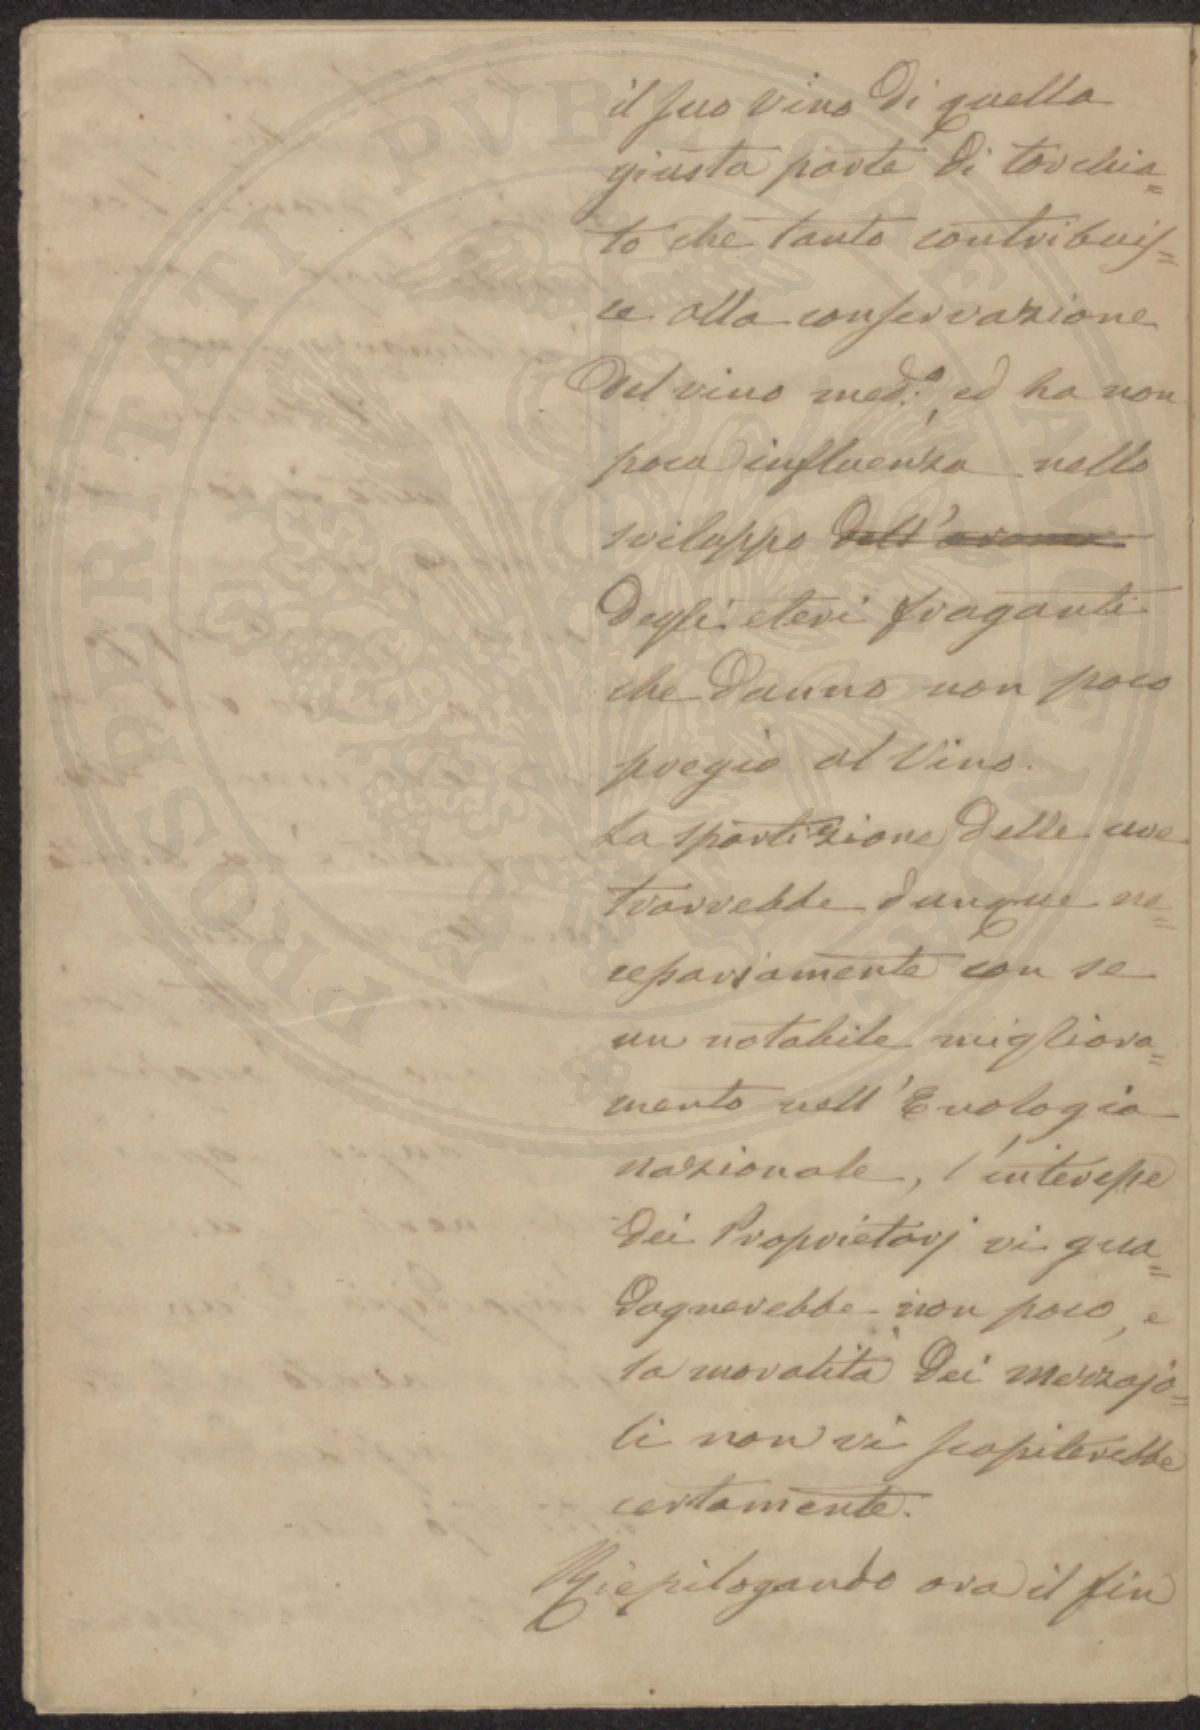 il suo vino di quella
giusta parte di torchia=
to che tanto contribuis=
ce alla conservazione
del vino med.o, ed ha non
poca influenza nello
sviluppo dell'aroma
degli eteri fraganti
che danno non poco
pregio al Vino.
La spartizione delle uve
trarrebbe dunque ne=
cessariamente con se
un notabile migliora=
mento nell'Enologia
nazionale, l'interesse
dei Proprietarj vi gua=
dagnerebbe non poco, e
la moralità dei mezzajo=
li non vi scapiterebbe
certamente.
Riepilogando ora il fin
PROSPERITATI PVBLICAE AVGENDAE